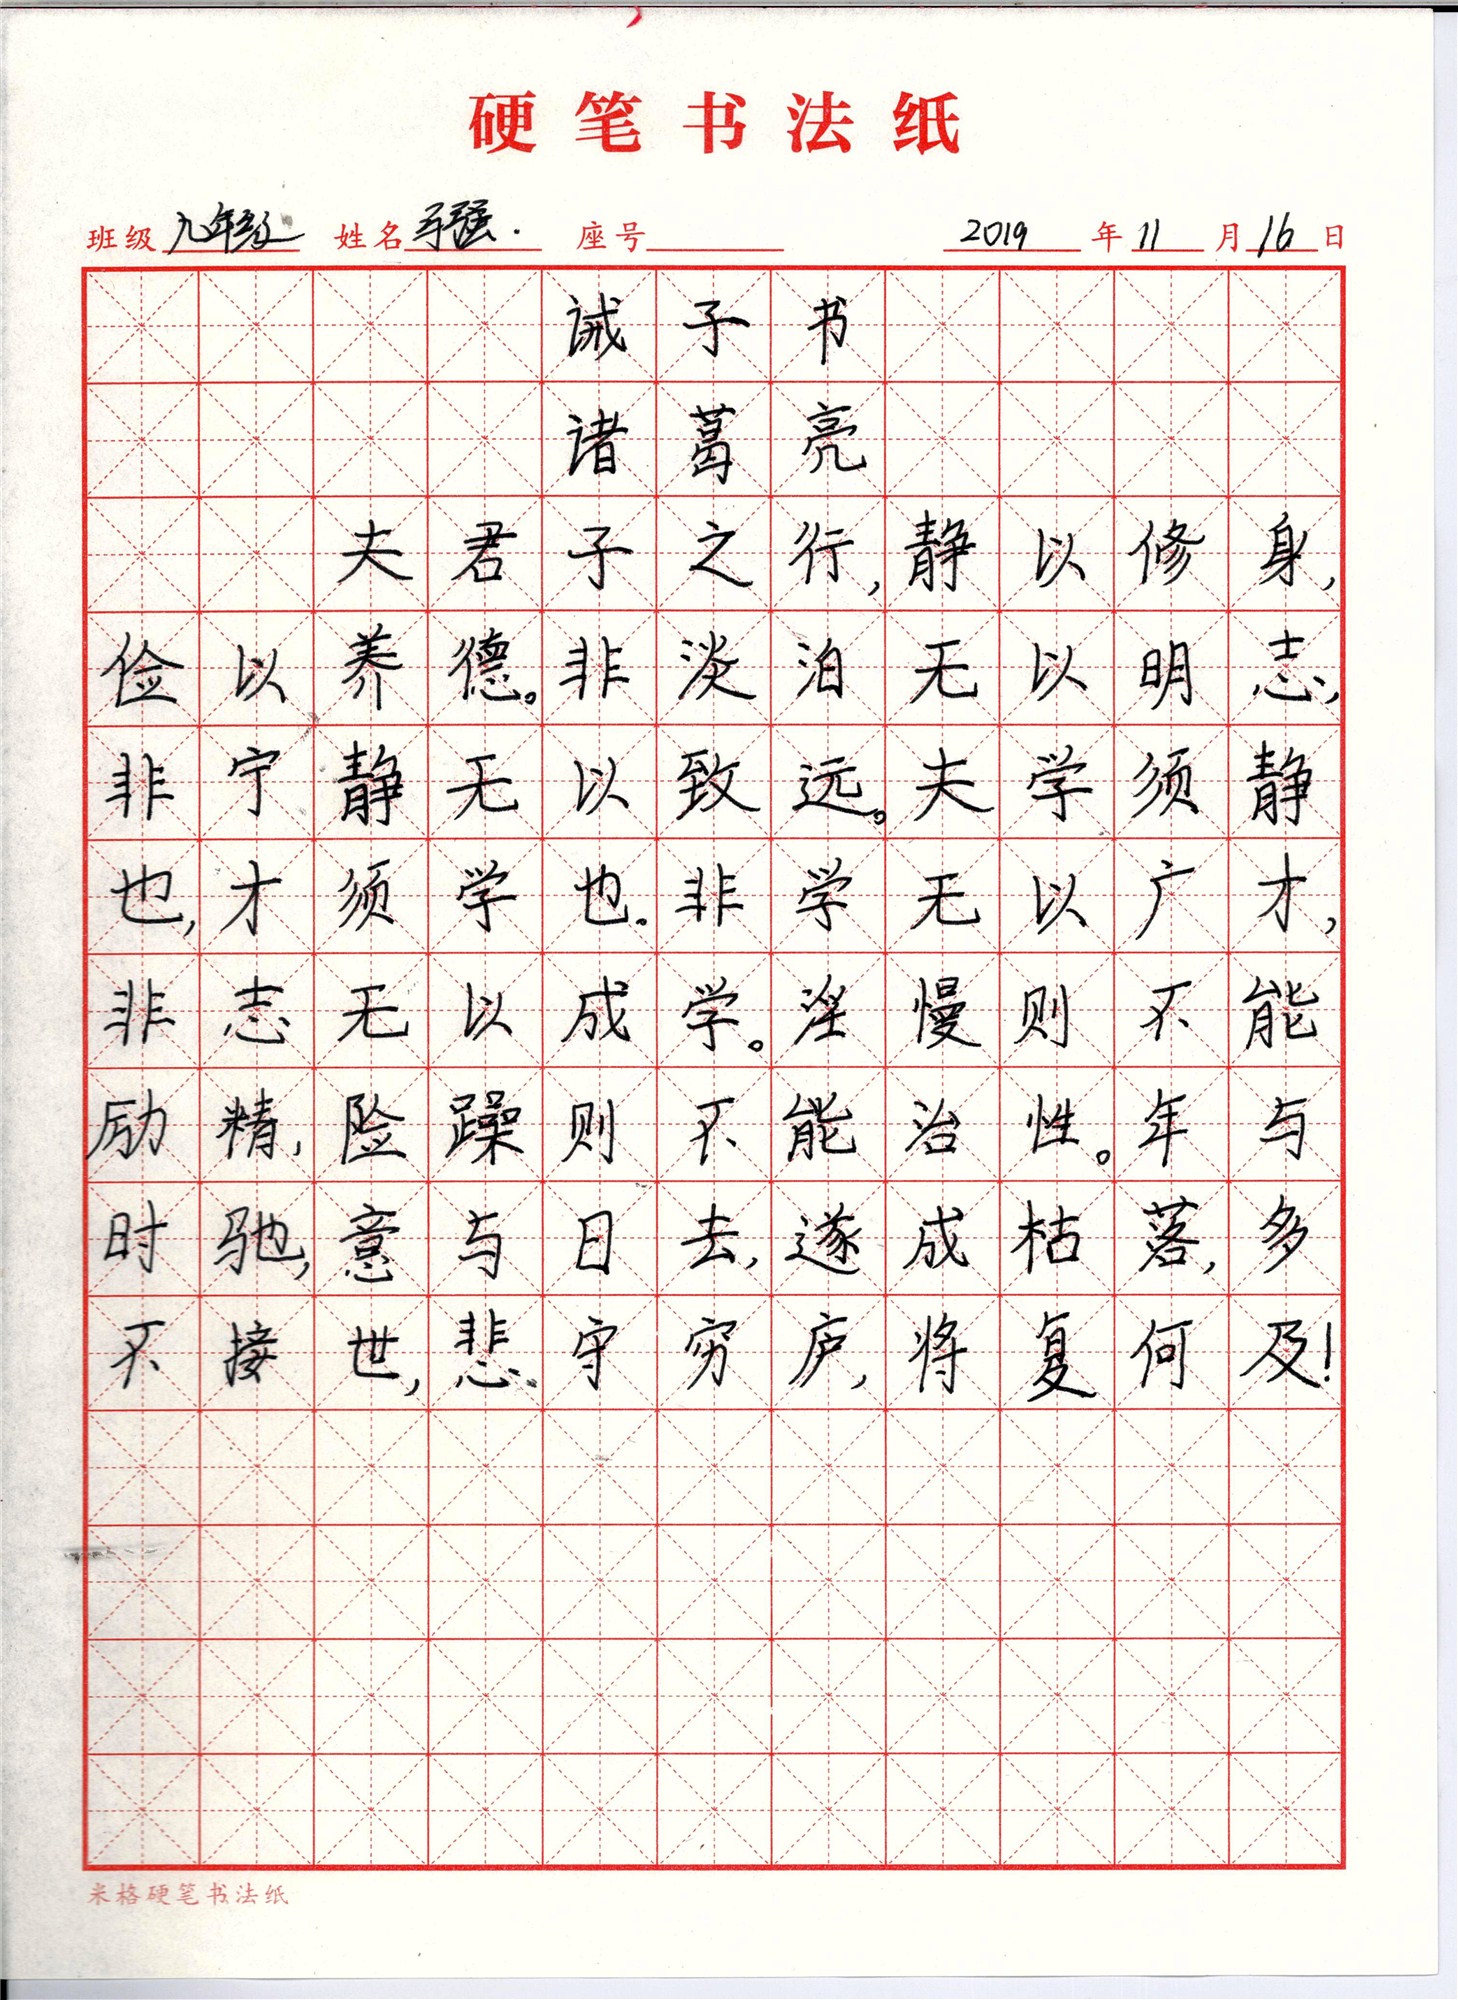 硬笔书法纸
班级 九年级 姓名 马强. 座号 2019 年 11 月 16 日
诫子书
诸葛亮
夫君子之行,静以修身,
俭以养德。非淡泊无以明志,
非宁静无以致远。夫学须静
也,才须学也。非学无以广才,
非志无以成学。淫慢则不能
励精,险躁则不能治性。年与
时驰,意与日去,遂成枯落,多
不接世,悲守穷庐,将复何及!
米格硬笔书法纸